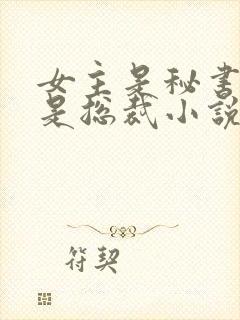 女主是秘书
是总裁小说
符契